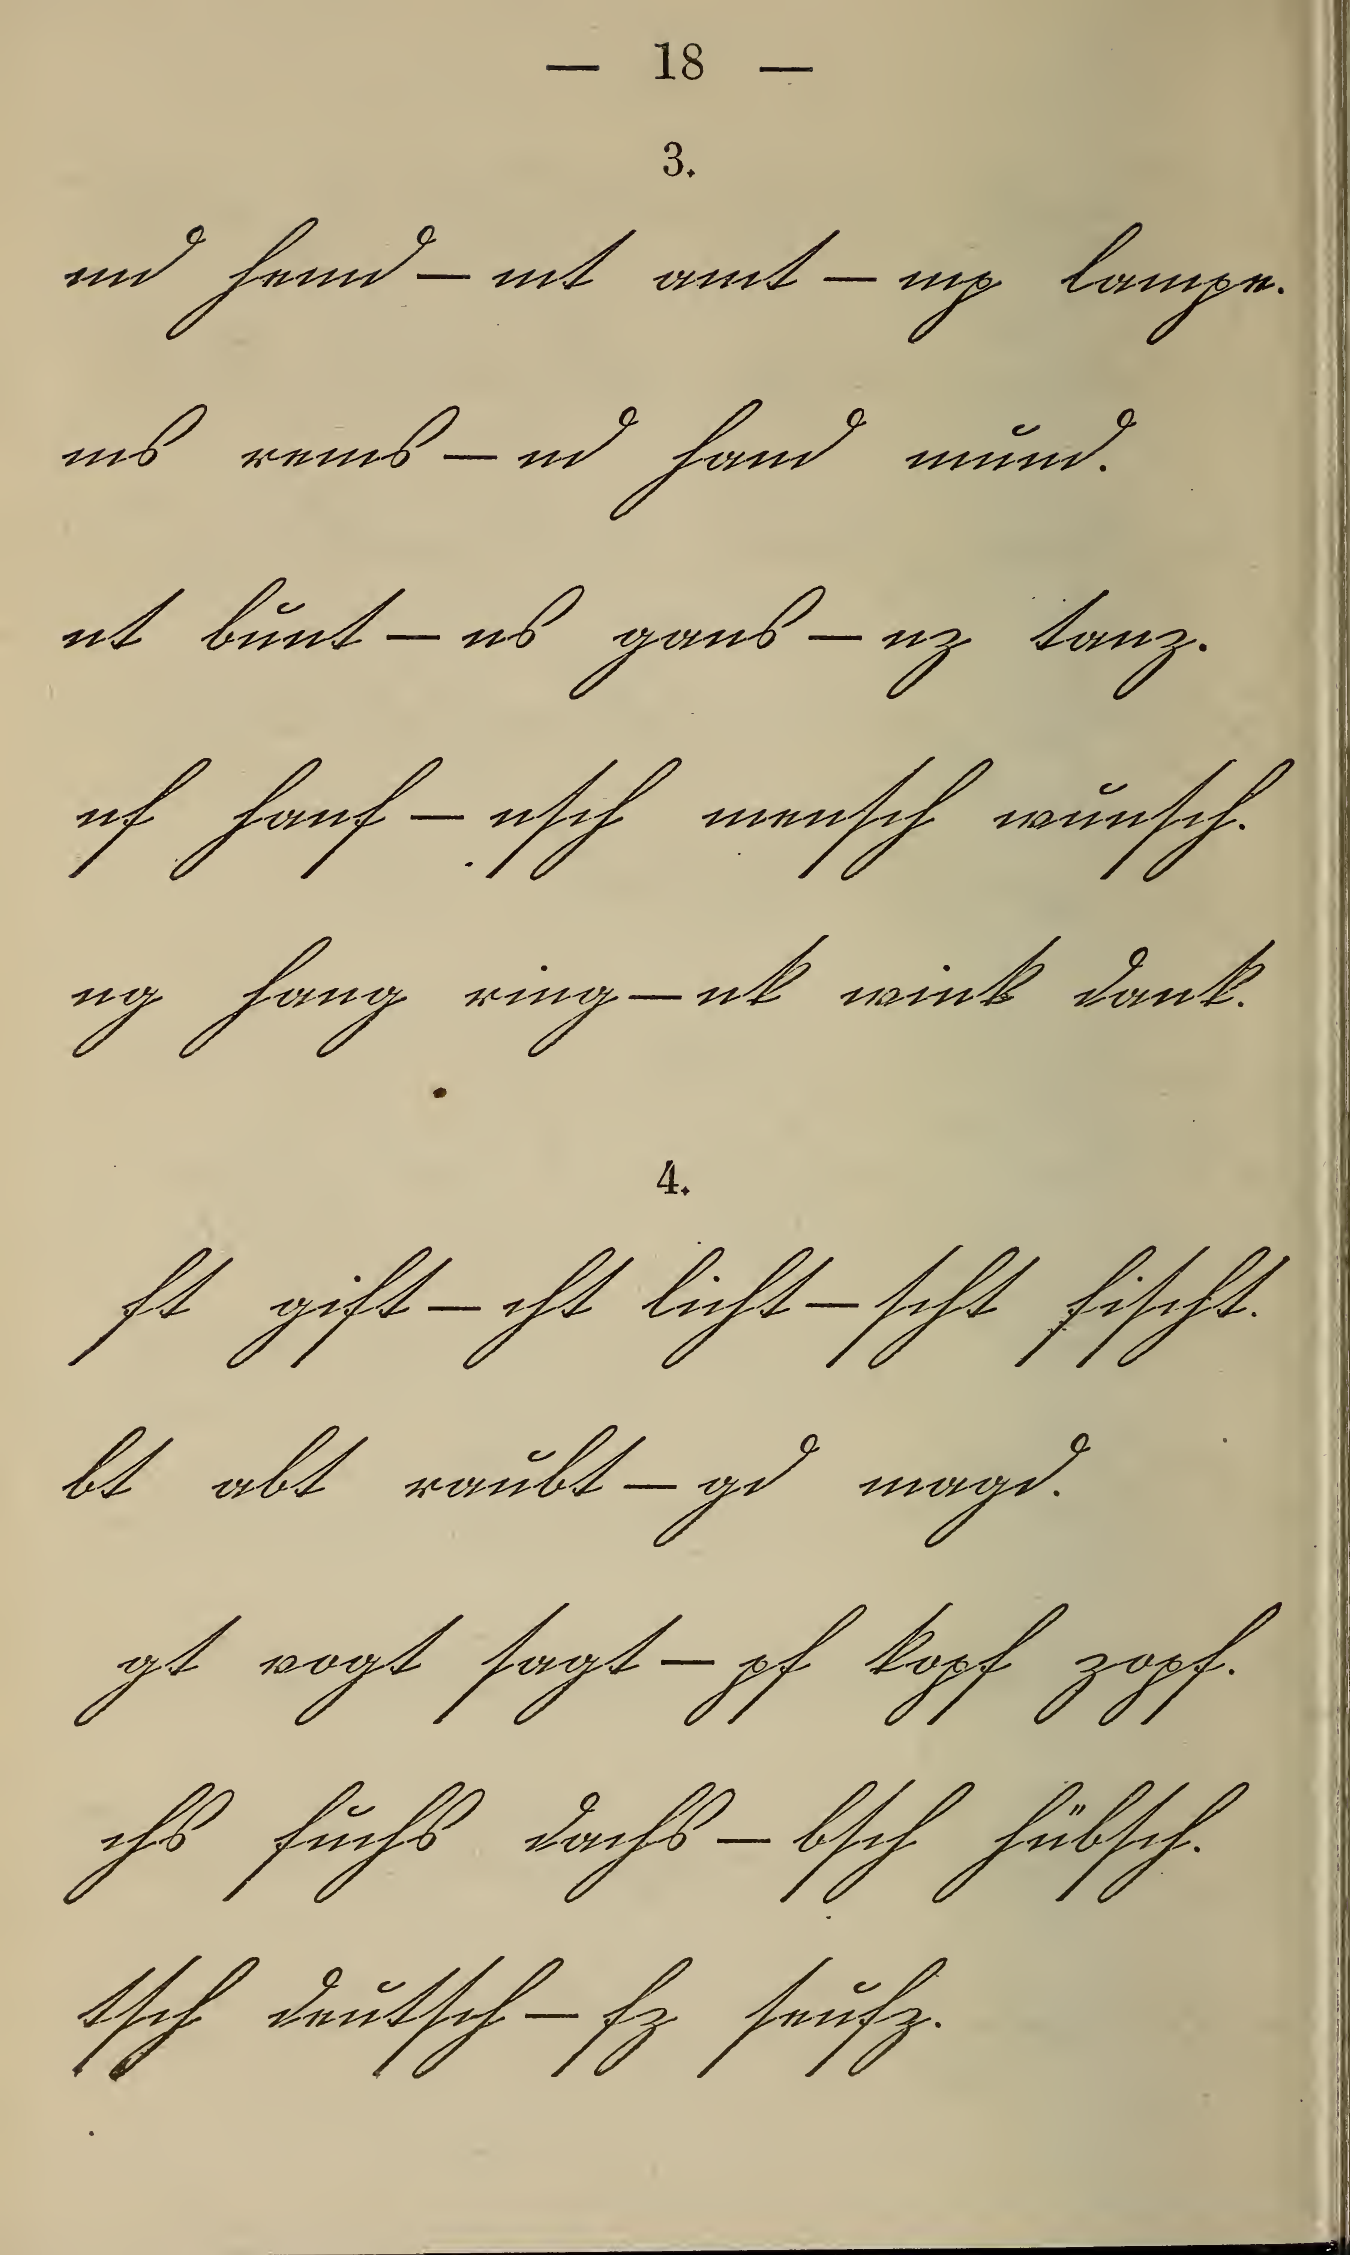 — 18 —
3.
md hemd — mt amt — mp lampe.
ms rems — nd hand mund.
nt bunt — ns gans — nz tanz.
nf hanf — nsch mensch wunsch.
ng hang ring — nk wink dank.
4.
ft gift — cht licht — scht fischt.
bt abt raubt — gd magd.
gt vogt sagt — pf kopf zopf.
chs fuchs dachs — bsch hübsch.
tsch deutsch — fz seufz.